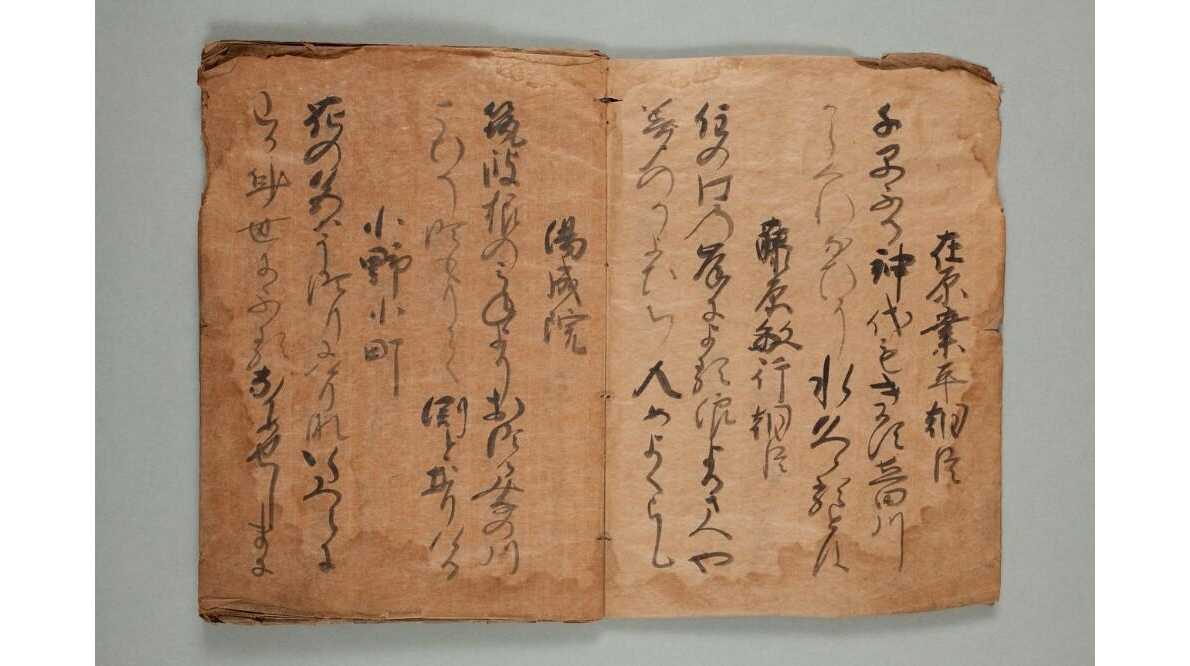 在原業平朝臣
千早ふる神代もきかす立田川
からくれなゐに水くゝるとは
藤原敏行朝臣
住の江の岸による浪よるさへや
夢のかよひち人めよくらむ
陽成院
筑波根のみねよりおつるみなの川
こひそつもりて淵となりける
小野小町
花の色はうつりにけりないたつらに
わか身世にふるなかめせしまに